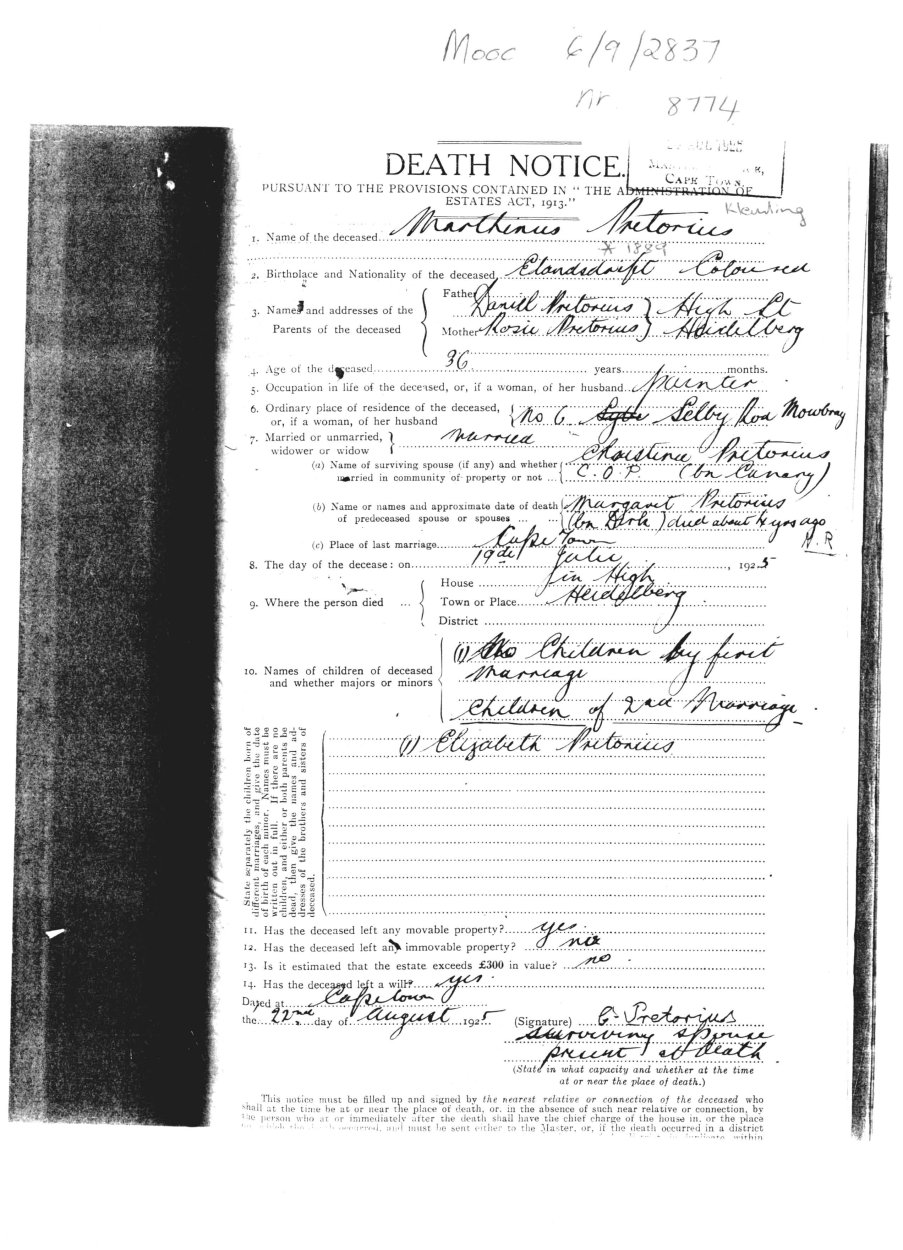 Mooc 6/9/2837
nr. 8774
CAPE TOWN.
DEATH NOTICE.
PURSUANT TO THE PROVISIONS CONTAINED IN "THE ADMINISTRATION OF
ESTATES ACT, 1913."
Kleurling
1. Name of the deceased Marthinus Pretorius
* 1889
2. Birthplace and Nationality of the deceased, Elandsdrift Coloured
3. Names and addresses of the Parents of the deceased
Father Daniel Pretorius } High St
Mother Rosie Pretorius } Heidelberg
4. Age of the deceased 36 years months.
5. Occupation in life of the deceased, or, if a woman, of her husband painter
6. Ordinary place of residence of the deceased,
or, if a woman, of her husband { No 6 Selby Roa Mowbray
7. Married or unmarried,
widower or widow } Married
(a) Name of surviving spouse (if any) and whether { Christina Pretorius
married in community of property or not ... { C.O.P. (bn Canary)
(b) Name or names and approximate date of death { Margaret Pretorius
of predeceased spouse or spouses ... ... { (bn Dirk) died about 4 yrs ago
N.R
(c) Place of last marriage Cape Town
8. The day of the decease: on 19de Julie, 1925
9. Where the person died ...
House in High
Town or Place Heidelberg
District
10. Names of children of deceased
and whether majors or minors
(1) No Children by first
marriage
Children of 2nd Marriage
State separately the children born of
different marriages, and give the date
of birth of each minor. Names must be
written out in full. If there are no
children, and either or both parents be
dead, then give the names and ad-
dresses of the brothers and sisters of
deceased.
(1) Elizabeth Pretorius
11. Has the deceased left any movable property? yes.
12. Has the deceased left any immovable property? no
13. Is it estimated that the estate exceeds £300 in value? no
14. Has the deceased left a will? yes.
Dated at Capetown
the 22nd day of August 1925
(Signature) C. Pretorius
surviving spouse
present at death
(State in what capacity and whether at the time
at or near the place of death.)
This notice must be filled up and signed by the nearest relative or connection of the deceased who
shall at the time be at or near the place of death, or, in the absence of such near relative or connection, by
the person who at or immediately after the death shall have the chief charge of the house in, or the place
occurred, and must be sent either to the Master, or, if the death occurred in a district
within